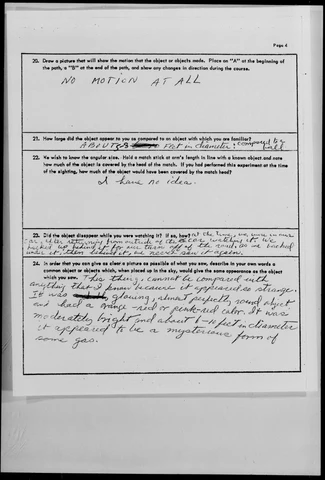 Page 4
20. Draw a picture that will show the motion that the object or objects made. Place an "A" at the beginning
of the path, a "B" at the end of the path, and show any changes in direction during the course.
NO MOTION AT ALL
21. How large did the object appear to you as compared to an object with which you are familiar?
ABOUT 8 feet in diameter: compared to a ball
22. We wish to know the angular size. Hold a match stick at arm's length in line with a known object and note
how much of the object is covered by the head of the match. If you had performed this experiment at the time
of the sighting, how much of the object would have been covered by the match head?
I have no idea.
23. Did the object disappear while you were watching it? If so, how? at the time, we were in our
car, after returning from outside of the car watching it. We
backed up behind it for our turn off of the road. as we backed
under it, then behind it, we never saw it again.
24. In order that you can give as clear a picture as possible of what you saw, describe in your own words a
common object or objects which, when placed up in the sky, would give the same appearance as the object
which you saw. This thing cannot be compared with
anything that I know because it appeared so strange.
It was glowing, almost perfectly round object
and had a orange-red or pink-red color. It was
moderately bright and about 8-10 feet in diameter
it appeared to be a mysterious form of
some gas.